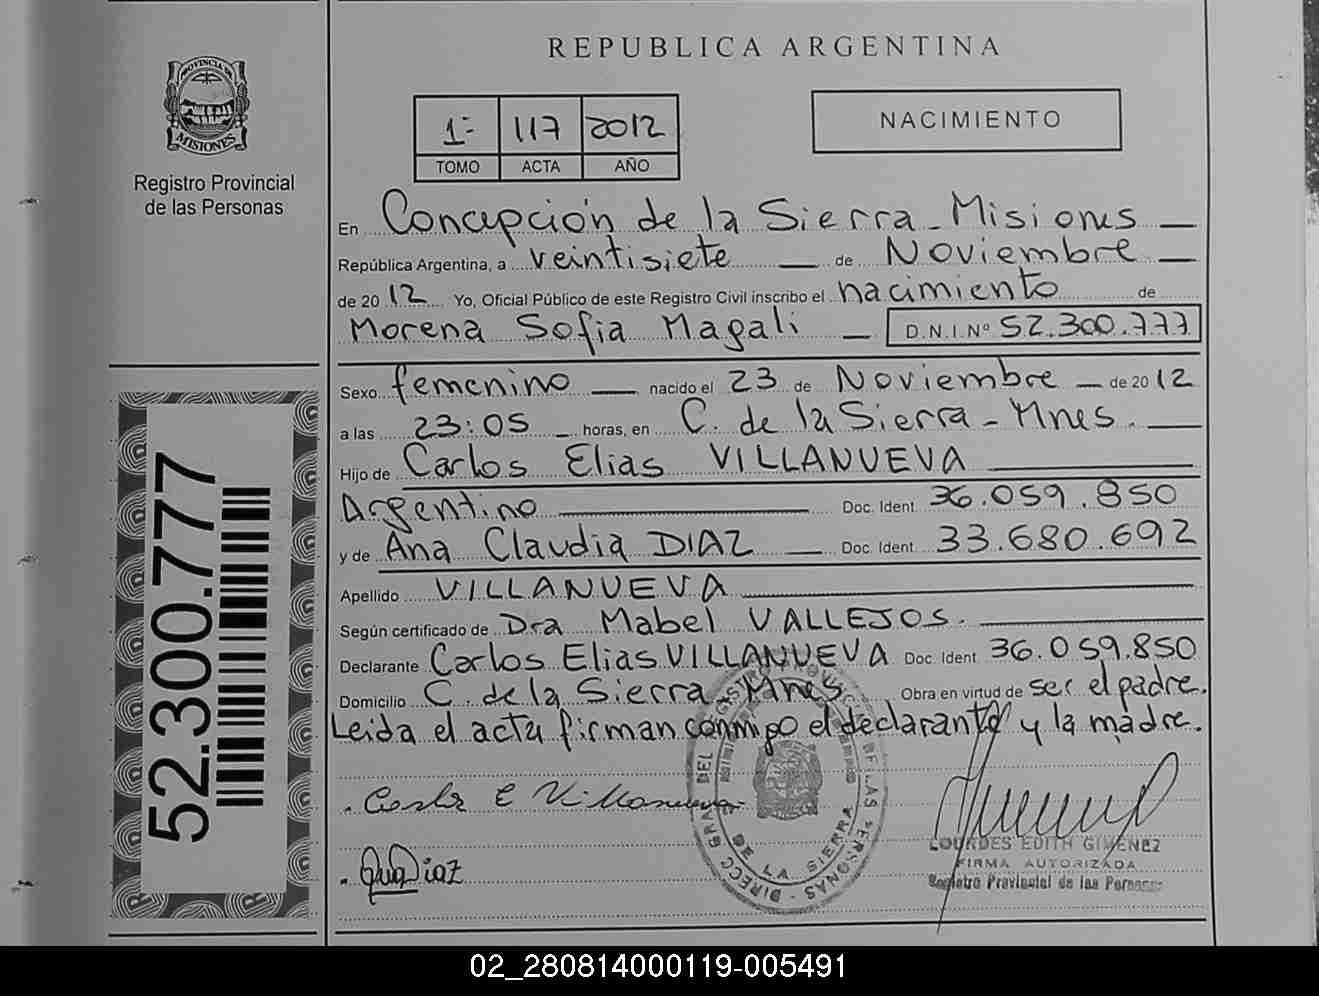 REPUBLICA ARGENTINA
PROVINCIA DE
MISIONES
Registro Provincial
de las Personas
1º 117 2012
TOMO ACTA AÑO
NACIMIENTO
En Concepción de la Sierra - Misiones
República Argentina, a veintisiete de Noviembre
de 2012 Yo, Oficial Público de este Registro Civil inscribo el nacimiento de
Morena Sofia Magali D.N.I.Nº 52.300.777
Sexo femenino nacido el 23 de Noviembre de 2012
a las 23:05 horas, en C. de la Sierra - Mnes.
Hijo de Carlos Elias VILLANUEVA
Argentino Doc. Ident. 36.059.850
y de Ana Claudia DIAZ Doc. Ident. 33.680.692
Apellido VILLANUEVA
Según certificado de Dra Mabel VALLEJOS.
Declarante Carlos Elias VILLANUEVA Doc. Ident. 36.059.850
Domicilio C. de la Sierra Mnes Obra en virtud de ser el padre.
Leida el acta firman conmigo el declarante y la madre.
52.300.777
Carlos E Villanueva
Ana Diaz
DE LA SIERRA
LOURDES EDITH GIMENEZ
FIRMA AUTORIZADA
Registro Provincial de las Personas
02_280814000119-005491